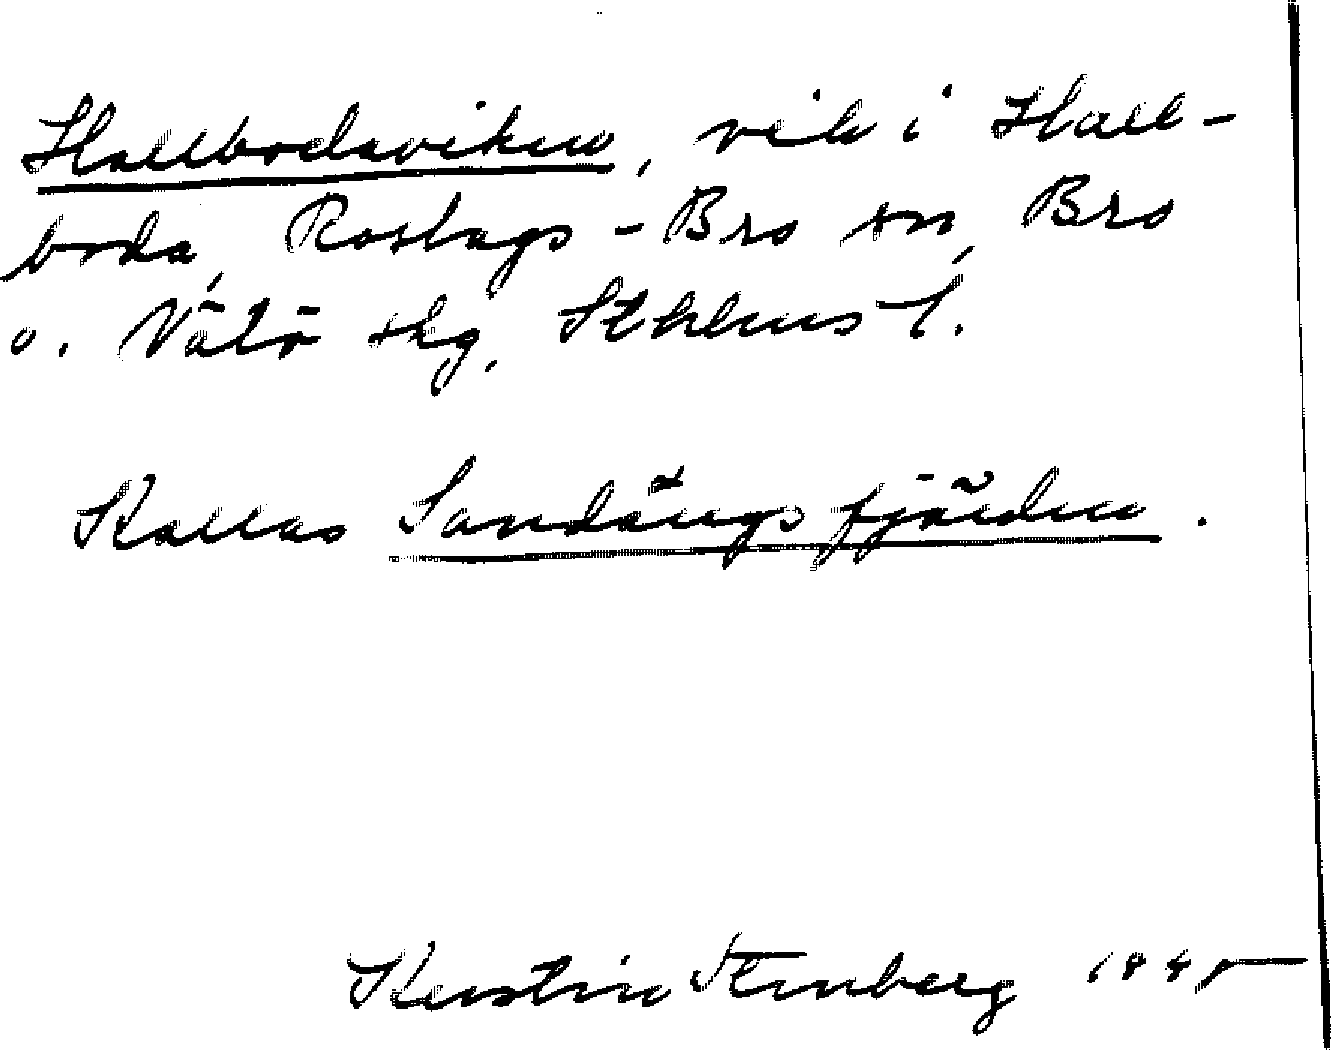 Hallbodaviken, vik i Hall-
boda, Roslags-Bro sn, Bro
o. Vätö skg, Sthlms l.
Kallas Sandängsfjärden.
Kerstin Stenberg 1945